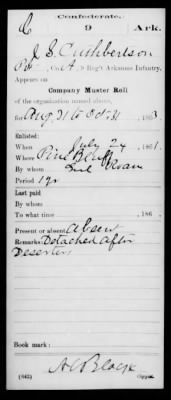 Confederate.
C 9 Ark.
J. S. Cuthbertson
Co. A, 9 Reg't Arkansas Infantry,
Appears on
Company Muster Roll
of the organization named above,
for Aug 31 to Oct 31, 1863.
Enlisted:
When July 24, 1861.
Where Pine Bluff
By whom Roan
Period 1 yr
Last paid
By whom
To what time , 186 .
Present or absent Absent
Remarks: Detached After
Deserters
Book mark:
(642) Copyist.